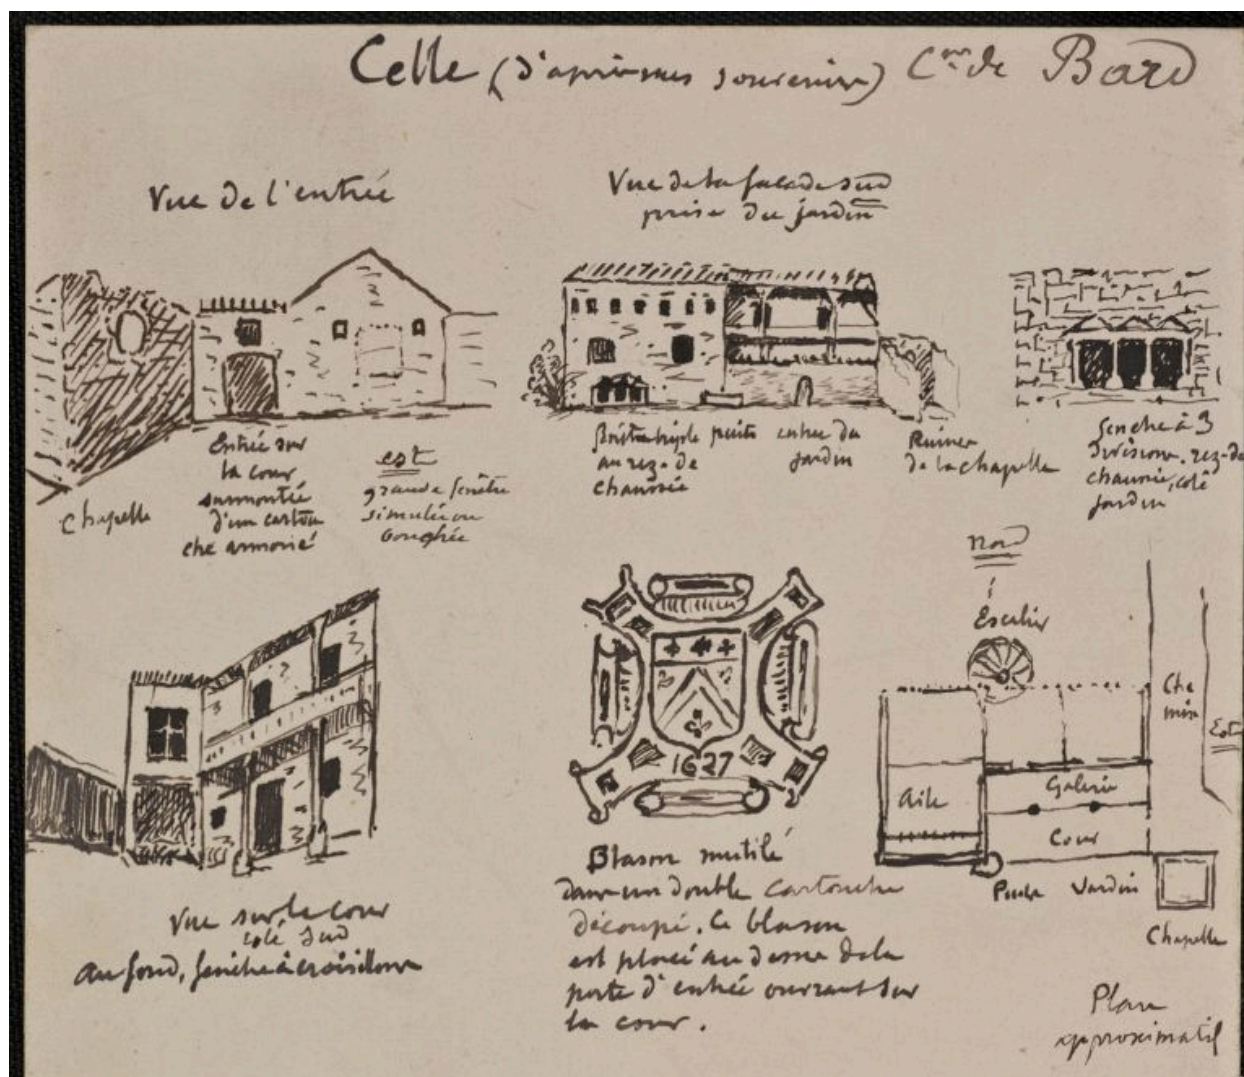 Celle (d'après mes souvenirs) Cne de Bard
Vue de l'entrée
Vue de la façade sud
prise du jardin
Chapelle
Entrée sur
la cour
surmontée
d'un cartou
che armorié
est
grande fenêtre
simulée ou
bouchée
au rez-de
chaussée
puits
entrée du
jardin
Ruines
de la chapelle
fenêtre à 3
divisions, rez-de
chaussée, côté
jardin
Vue sur la cour
côté sud
au fond, fenêtre à croisillons
1627
Blason mutilé
dans un double cartouche
découpé. Ce blason
est placé au dessus de la
porte d'entrée ouvrant sur
la cour.
nord
Escalier
Che
min
Est
Aile
Galerie
Cour
Puits
Jardin
Chapelle
Plan
approximatif